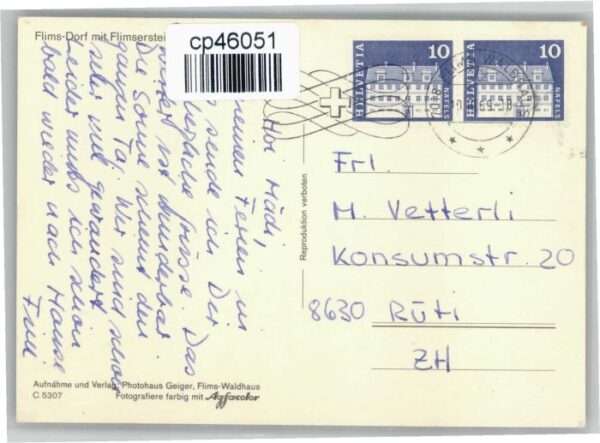 Flims-Dorf mit Flimserstein
cp46051
HELVETIA
10
NÄFELS
HELVETIA
10
NÄFELS
Hoi Mädi,
meinen Ferien in
sende ich Dir
herzliche Grüsse. Das
Wetter ist wunderbar
Die Sonne scheint den
ganzen Tag. Wir sind schon
sehr viel gewandert
Leider muss ich schon
bald wieder nach Hause
Reproduktion verboten
Frl.
M. Vetterli
Konsumstr. 20
8630 Rüti
ZH
Aufnahme und Verlag: Photohaus Geiger, Flims-Waldhaus
C 5307 Fotografiere farbig mit Agfacolor